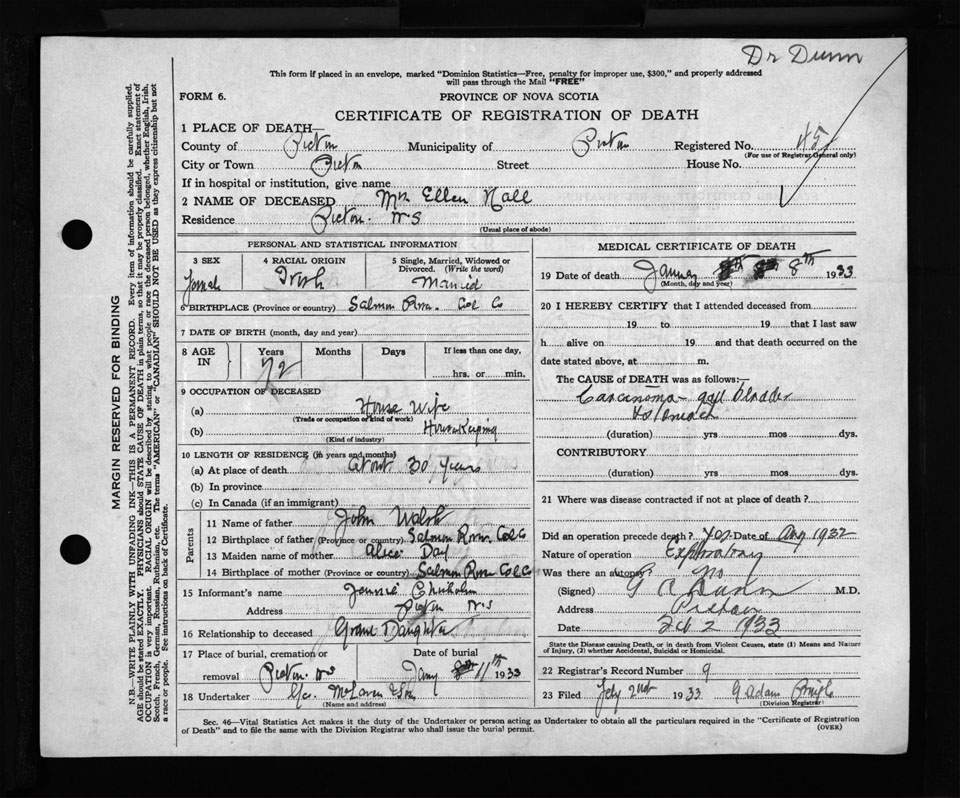 Dr Dunn
This form if placed in an envelope, marked "Dominion Statistics—Free, penalty for improper use, $300," and properly addressed
will pass through the Mail "FREE"
FORM 6.
PROVINCE OF NOVA SCOTIA
CERTIFICATE OF REGISTRATION OF DEATH
1 PLACE OF DEATH—
County of Pictou Municipality of Pictou Registered No. 45
(For use of Registrar General only)
City or Town Pictou Street House No.
If in hospital or institution, give name
2 NAME OF DECEASED Mrs Ellen Nall
Residence Pictou. N S
(Usual place of abode)
PERSONAL AND STATISTICAL INFORMATION
3 SEX Female
4 RACIAL ORIGIN Irish
5 Single, Married, Widowed or Divorced. (Write the word) Married
6 BIRTHPLACE (Province or country) Salmon River. Col Co
7 DATE OF BIRTH (month, day and year)
8 AGE IN Years 72 Months Days If less than one day, hrs. or min.
9 OCCUPATION OF DECEASED
(a) House Wife
(Trade or occupation or kind of work)
(b) Housekeeping
(Kind of industry)
10 LENGTH OF RESIDENCE (in years and months)
(a) At place of death about 30 years
(b) In province
(c) In Canada (if an immigrant)
Parents
11 Name of father John Walsh
12 Birthplace of father (Province or country) Salmon River. Col Co
13 Maiden name of mother Alice Day
14 Birthplace of mother (Province or country) Salmon River Col Co
15 Informant's name Jennie Chisholm
Address Pictou N S
16 Relationship to deceased Grand Daughter
17 Place of burial, cremation or removal Pictou N S
Date of burial Jany 11th 1933
18 Undertaker McLaren & Son
(Name and address)
MEDICAL CERTIFICATE OF DEATH
19 Date of death January 8th 1933
(Month, day and year)
20 I HEREBY CERTIFY that I attended deceased from
19 to 19 that I last saw
h alive on 19 and that death occurred on the
date stated above, at m.
The CAUSE of DEATH was as follows:—
Carcinoma gall bladder
& stomach
(duration) yrs mos dys.
CONTRIBUTORY
(duration) yrs mos dys.
21 Where was disease contracted if not at place of death?
Did an operation precede death? Yes Date of Aug 1932
Nature of operation Exploratory
Was there an autopsy? No
(Signed) Dunn M.D.
Address Pictou
Date Feb 2 1933
State the Disease causing Death, or in death from Violent Causes, state (1) Means and Nature of Injury, (2) whether Accidental, Suicidal or Homicidal.
22 Registrar's Record Number 9
23 Filed Feby 2nd 1933 Adam
(Division Registrar)
Sec. 46—Vital Statistics Act makes it the duty of the Undertaker or person acting as Undertaker to obtain all the particulars required in the "Certificate of Registration
of Death" and to file the same with the Division Registrar who shall issue the burial permit.
(OVER)
MARGIN RESERVED FOR BINDING
N.B.—WRITE PLAINLY WITH UNFADING INK—THIS IS A PERMANENT RECORD. Every item of information should be carefully supplied.
AGE should be stated EXACTLY. PHYSICIANS should STATE CAUSE OF DEATH in plain terms, so that it may be properly classified. Exact statement of
OCCUPATION is very important. RACIAL ORIGIN will be described by stating to what people or race the deceased person belonged, whether English, Irish,
Scotch, French, German, Russian, Ruthenian, etc. The terms "AMERICAN" or "CANADIAN" SHOULD NOT BE USED as they express citizenship but not
a race or people. See instructions on back of Certificate.